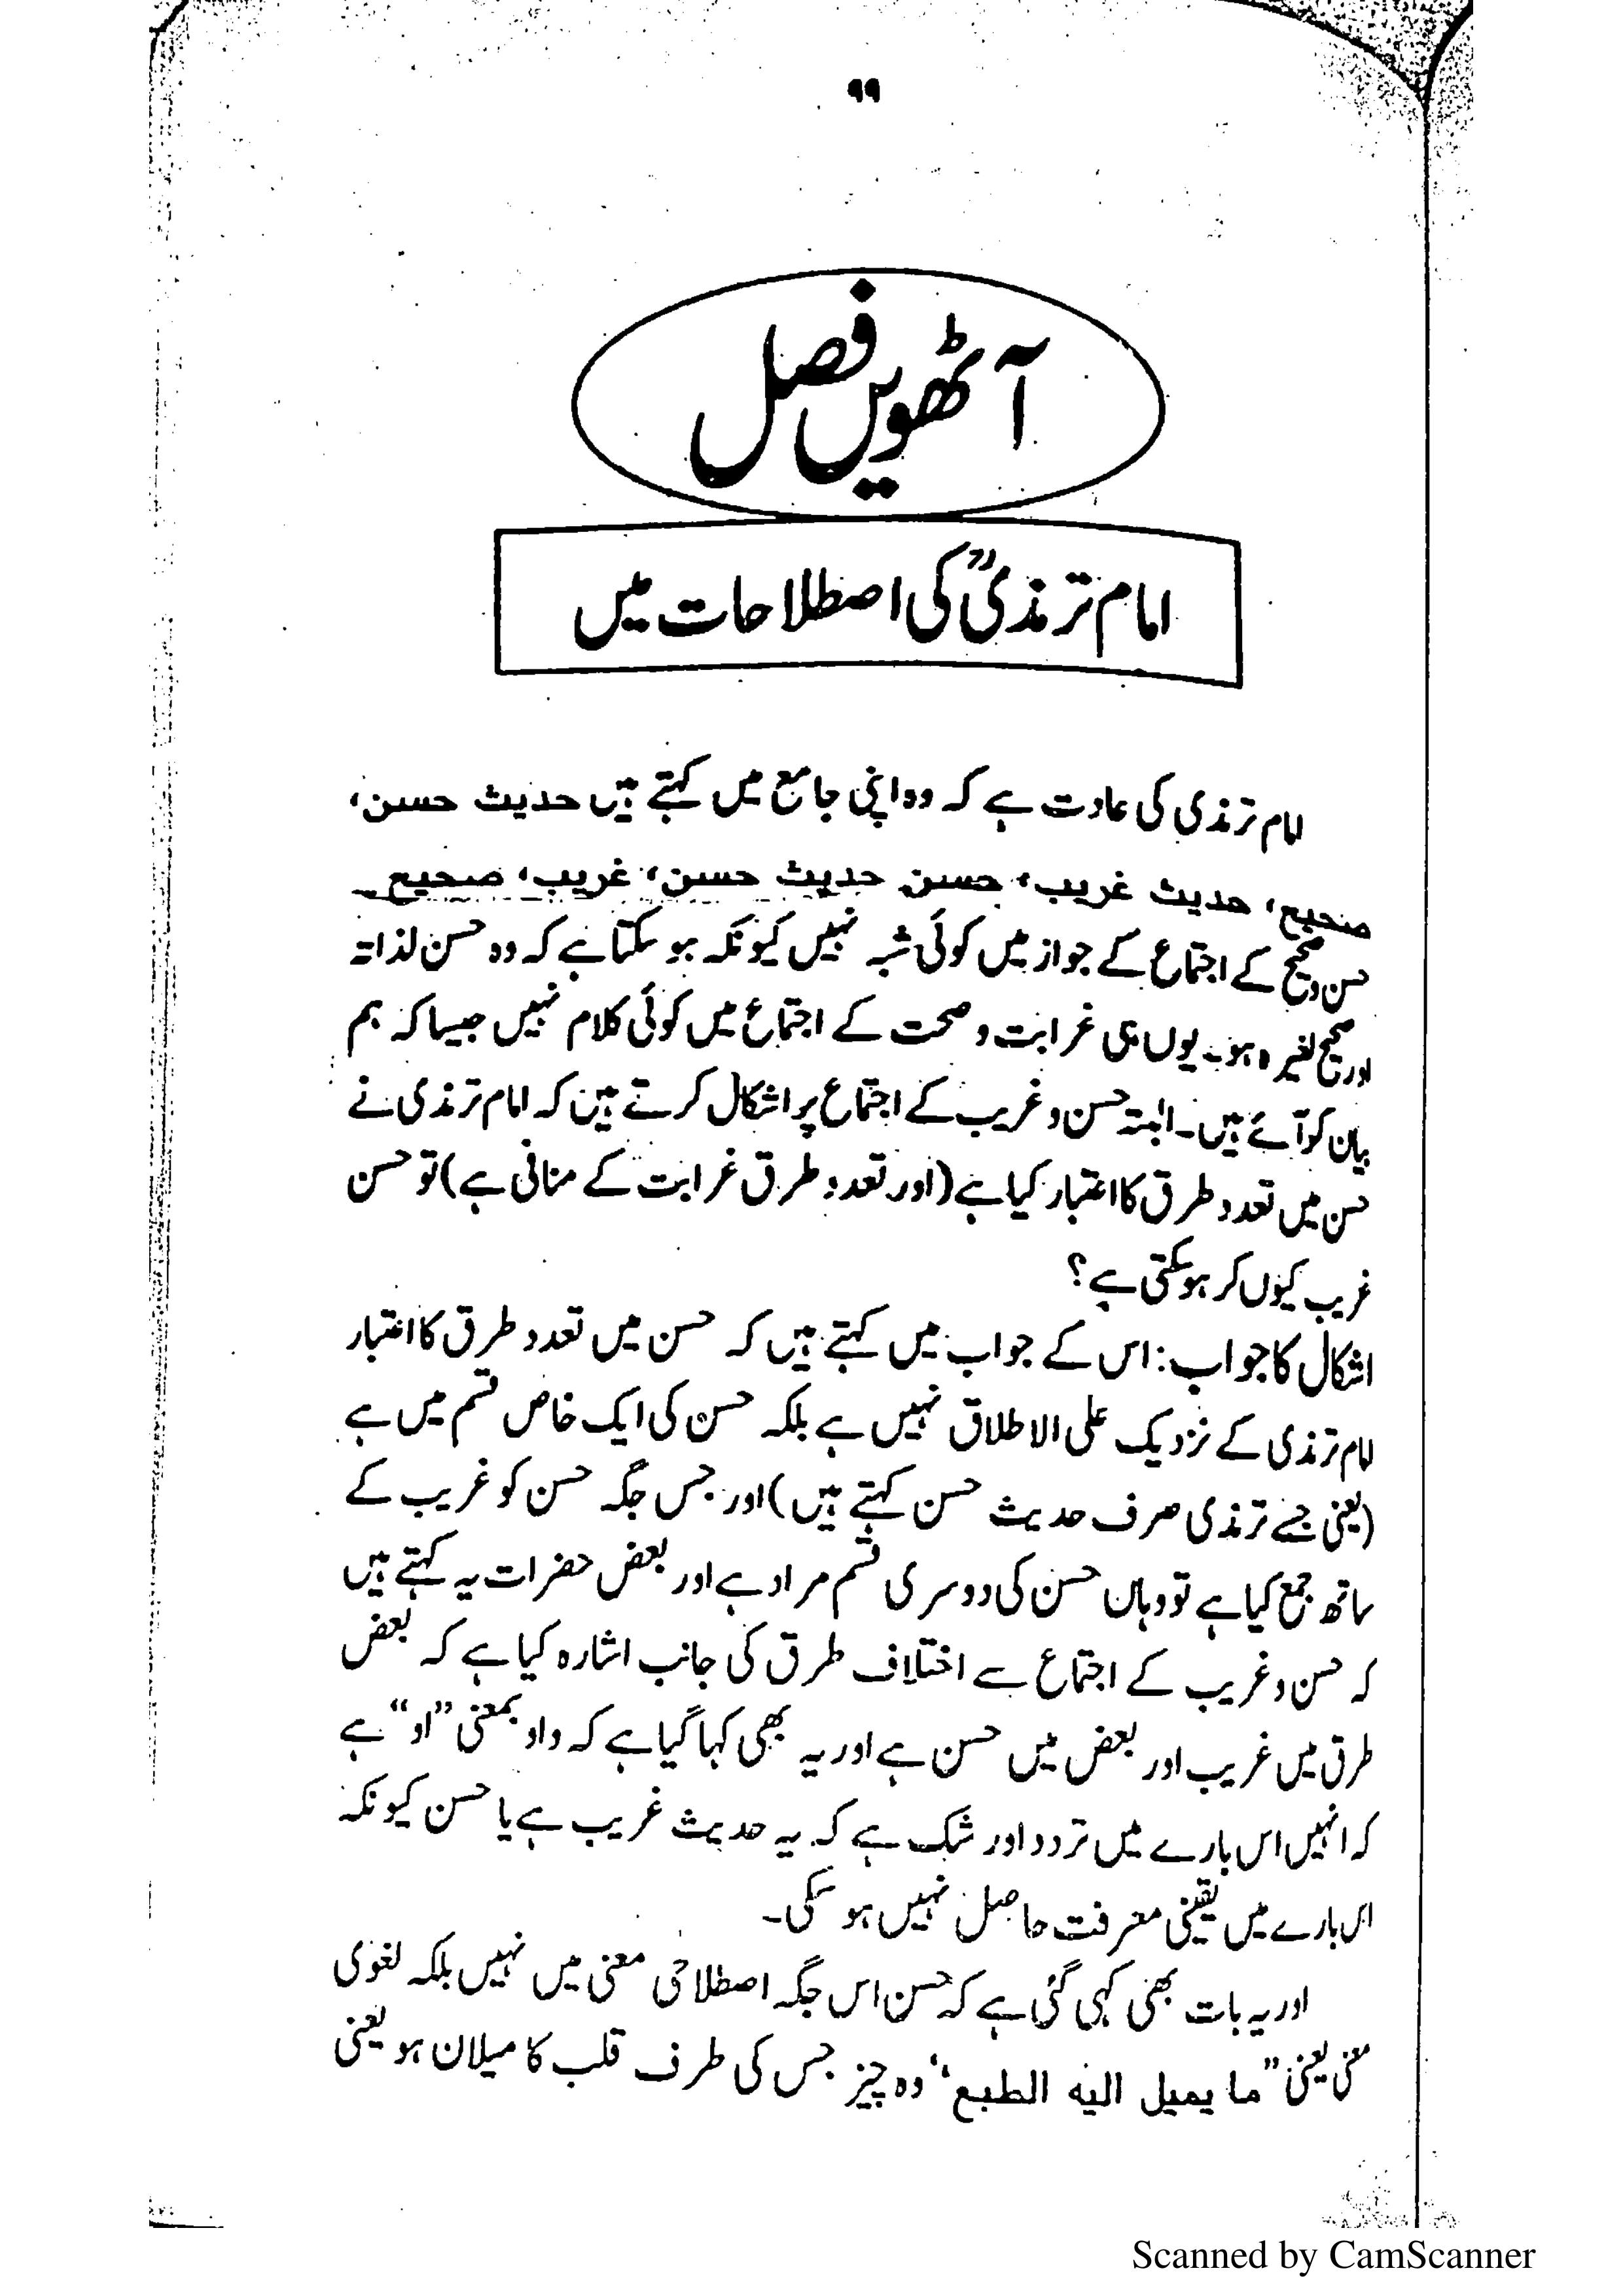 ۹۹
آٹھویں فصل
امام ترمذیؒ کی اصطلاحات میں
امام ترمذی کی عادت ہے کہ وہ اپنی جامع میں کہتے ہیں حدیث حسن،
صحیح، حدیث غریب، حسن حدیث حسن، غریب، صحیح۔
حسن و صحیح کے اجتماع کے جواز میں کوئی شبہ نہیں کیونکہ ہو سکتا ہے کہ وہ حسن لذاتہ
اور صحیح لغیرہ ہو۔ یوں ہی غرابت و صحت کے اجتماع میں کوئی کلام نہیں جیسا کہ ہم
بیان کر آئے ہیں۔ البتہ حسن و غریب کے اجتماع پر اشکال کرتے ہیں کہ امام ترمذی نے
حسن میں تعدد طرق کا اعتبار کیا ہے (اور تعدد طرق غرابت کے منافی ہے) تو حسن
غریب کیوں کر ہو سکتی ہے؟
اشکال کا جواب: اس کے جواب میں کہتے ہیں کہ حسن میں تعدد طرق کا اعتبار
امام ترمذی کے نزدیک علی الاطلاق نہیں ہے بلکہ حسن کی ایک خاص قسم میں ہے
(یعنی جسے ترمذی صرف حدیث حسن کہتے ہیں) اور جس جگہ حسن کو غریب کے
ساتھ جمع کیا ہے تو وہاں حسن کی دوسری قسم مراد ہے اور بعض حضرات یہ کہتے ہیں
کہ حسن و غریب کے اجتماع سے اختلاف طرق کی جانب اشارہ کیا ہے کہ بعض
طرق میں غریب اور بعض میں حسن ہے اور یہ بھی کہا گیا ہے کہ واو بمعنی ”او“ ہے
کہ انہیں اس بارے میں تردد اور شک ہے کہ یہ حدیث غریب ہے یا حسن کیونکہ
اس بارے میں یقینی معرفت حاصل نہیں ہو سکی۔
اور یہ بات بھی کہی گئی ہے کہ حسن اس جگہ اصطلاحی معنی میں نہیں بلکہ لغوی
معنی یعنی ”ما یمیل الیه الطبع“ وہ چیز جس کی طرف قلب کا میلان ہو یعنی
Scanned by CamScanner